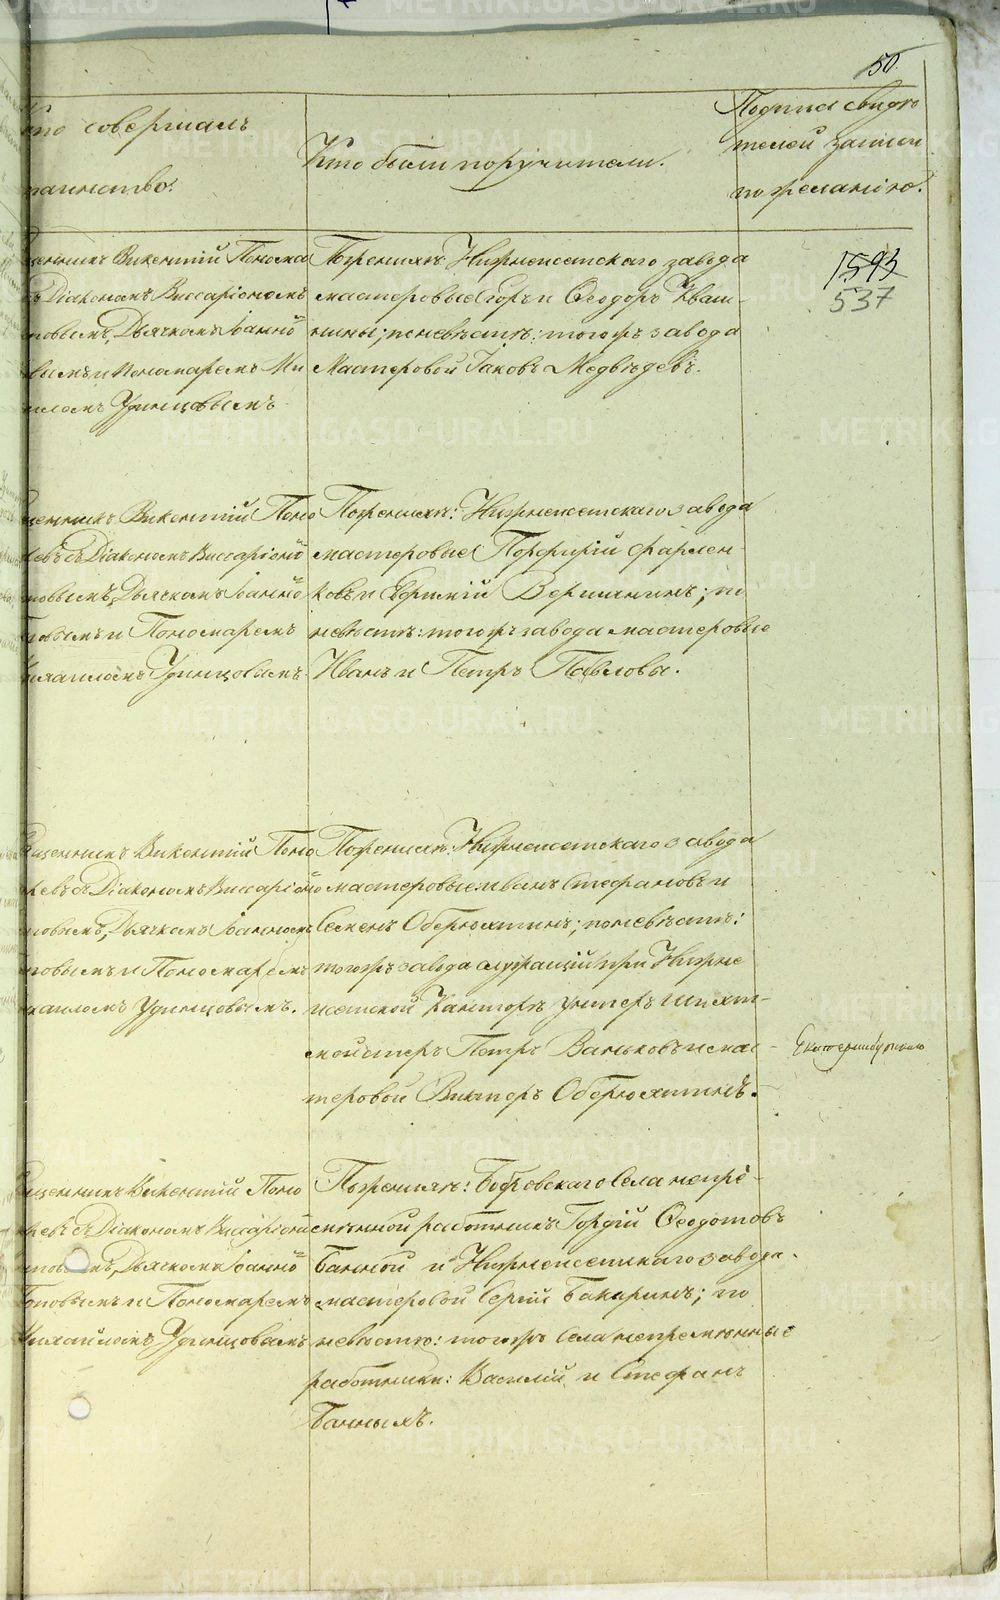 50.
Кто совершалъ
таинство.
Кто были поручители.
Подпись свидѣ
телей записи
по желанію.
щенникъ Викентій Понома
съ Діакономъ Виссаріономъ
товымъ, Дьячкомъ Іоанно
вымъ и Пономаремъ Ми
иломъ Удинцовымъ.
По женихѣ: Нижнеисетскаго завода
мастеровые Егоръ и Ѳеодоръ Кваш-
нины; по невѣстѣ: того жъ завода
Мастеровой Іаковъ Медвѣдевъ.
1593
537
щенникъ Викентій Поно
ревъ съ Діакономъ Виссаріоно
товымъ, Дьячкомъ Іоанно
товымъ и Пономаремъ
Михаиломъ Удинцовымъ.
По женихѣ: Нижнеисетскаго завода
мастеровые Порфирій Фарлен-
ковъ и Евѳимій Вершининъ; по
невѣстѣ: того жъ завода мастеровые
Иванъ и Петръ Павловы.
щенникъ Викентій Поно
ревъ съ Діакономъ Виссаріоно
товымъ, Дьячкомъ Іанномъ
товымъ и Пономаремъ
хаиломъ Удинцовымъ.
По женихѣ: Нижнеисетскаго завода
мастеровые Иванъ Стефановъ и
Семенъ Обрюхтинъ; по невѣстѣ:
того жъ завода служащій при Нижне
исетской Канторѣ унтеръ шихт-
мейстеръ Петръ Ваньковъ и мас-
теровой Викторъ Обрюхтинъ.
Екатеринбургскаго
щенникъ Викентій Поно
ревъ съ Діакономъ Виссаріоно
товымъ, Дьячкомъ Іоанно
товымъ и Пономаремъ
Михаиломъ Удинцовымъ
По женихѣ: Бобровскаго села непре-
мѣнной работникъ Гордій Ѳеодотовъ
Банной и Нижнеисетскаго завода
мастеровой Сергій Бакаринъ; по
невѣстѣ: того жъ села непремѣнные
работники: Василій и Стефанъ
Банныхъ.
METRIKI.GASO-URAL.RU